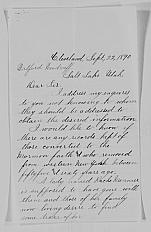 Cleveland, Sept, 22, 1890
Wilford Woodruff,
Salt Lake Utah.
Dear Sir,
I address my enquires
to you not knowing to whom
they should be addressed to
obtain the desired information
I would like to know if
there are any records kept of
those converted to the
Mormon faith & who removed
from western New York between
fiftyfive & sixty years ago.
A lady named
is supposed to have gone with
them and those of her family
now living desire to find
some trace of her